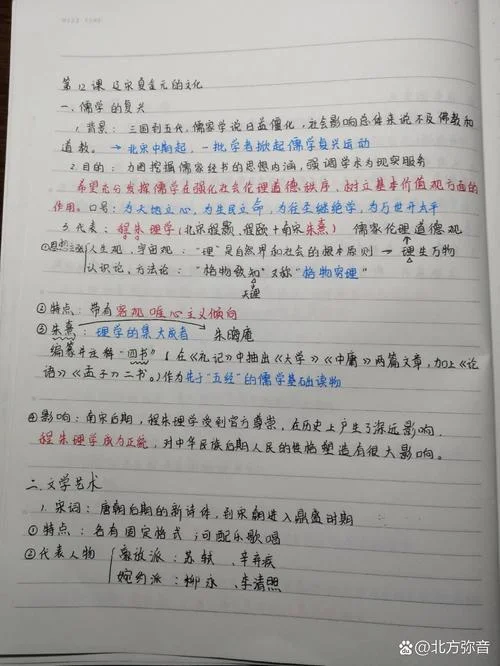 第12课 辽宋夏金元的文化
一.儒学的复兴
1.背景：三国到五代，儒家学说日益僵化，社会影响总体来说不及佛教和
道教。→北宋中期起，一批学者掀起儒学复兴运动
2.目的：力图挖掘儒家经书的思想内涵，强调学术为现实服务
希望充分发挥儒学在强化社会伦理道德秩序、树立基本价值观方面的
作用。口号：为天地立心，为生民立命，为往圣继绝学，为万世开太平
3.代表：程朱理学(北宋程颢、程颐+南宋朱熹) 儒家伦理道德观
①思想主张 人生观、宇宙观："理"是自然界和社会的根本原则 → 理生万物
认识论、方法论："格物致知"又称"格物穷理"
天理
②特点：带有客观唯心主义倾向
③朱熹：理学的集大成者 朱晦庵
编纂并注解"四书"(在《礼记》中抽出《大学》《中庸》两篇文章，加上《论
语》《孟子》二书。)作为先于"五经"的儒学基础读物
④影响：南宋后期，程朱理学受到官方尊崇，在历史上产生了深远影响.
程朱理学成为正统，对中华民族后期人民的性格塑造有很大影响。
二.文学艺术
1.宋词：唐朝后期的新诗体，到宋朝进入鼎盛时期
①特点：各有固定格式，可配乐歌唱
②代表人物 豪放派：苏轼、辛弃疾
婉约派：柳永、李清照
百家号/北方弥音